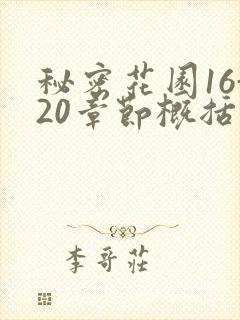 秘密花园16-
20章节概括
李哥莊